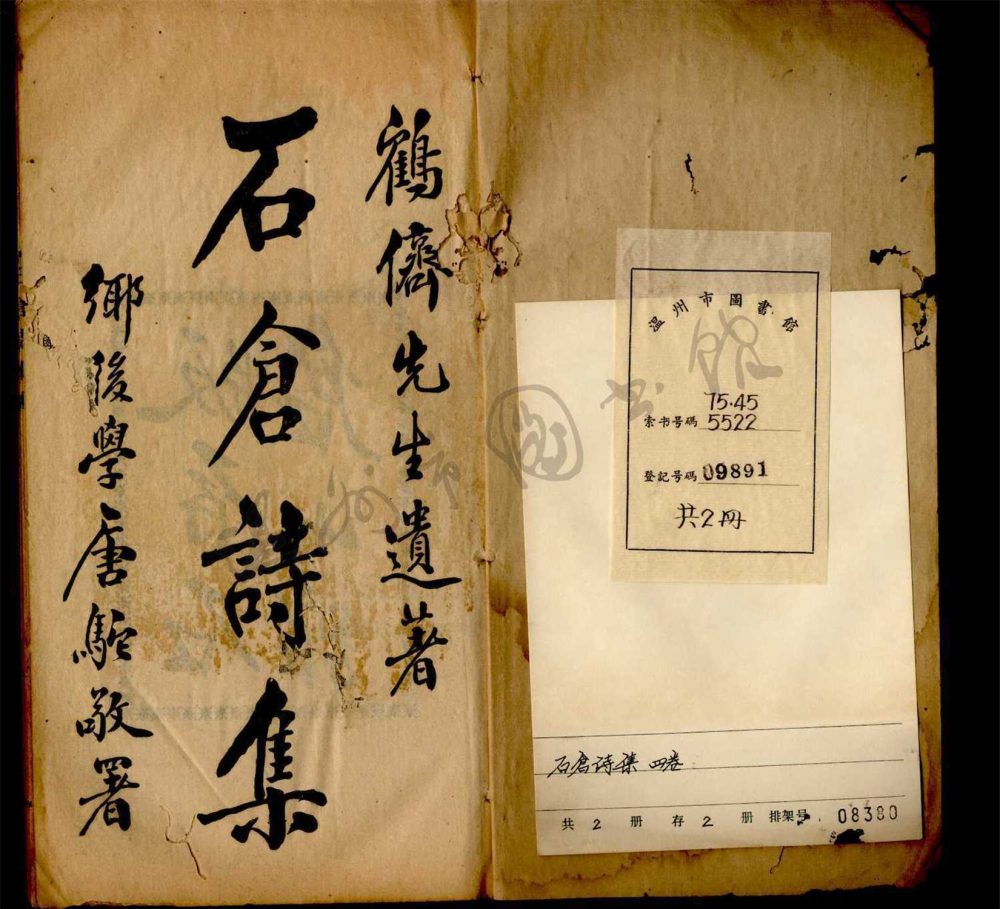 鶴儕先生遺著
石倉詩集
鄉後學唐駝敬署
温州市圖書館
索书号碼 75·45
5522
登記号碼 09891
共2册
石倉诗集 四卷
共 2 册 存 2 册 排架号 08380